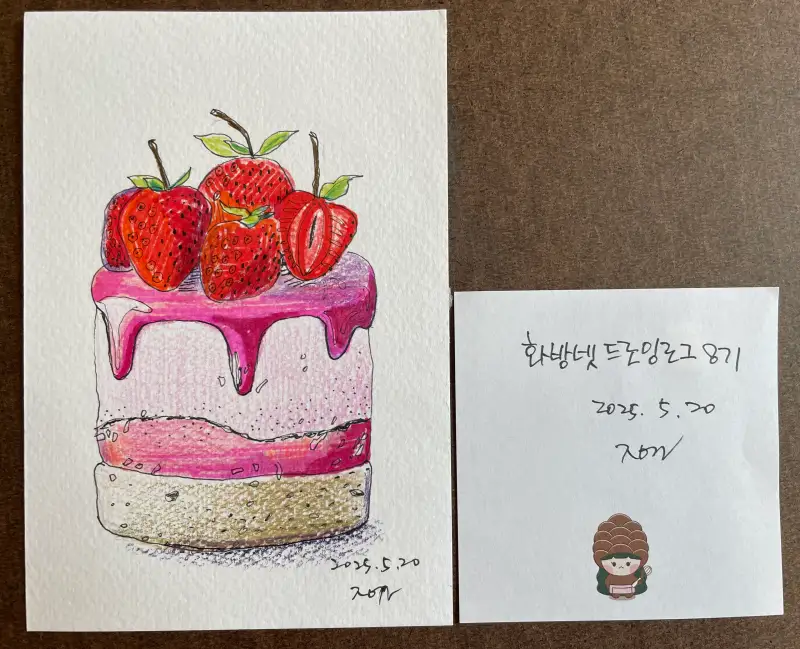 2025.5.20
화방넷 드로잉로그 8기
2025. 5. 20